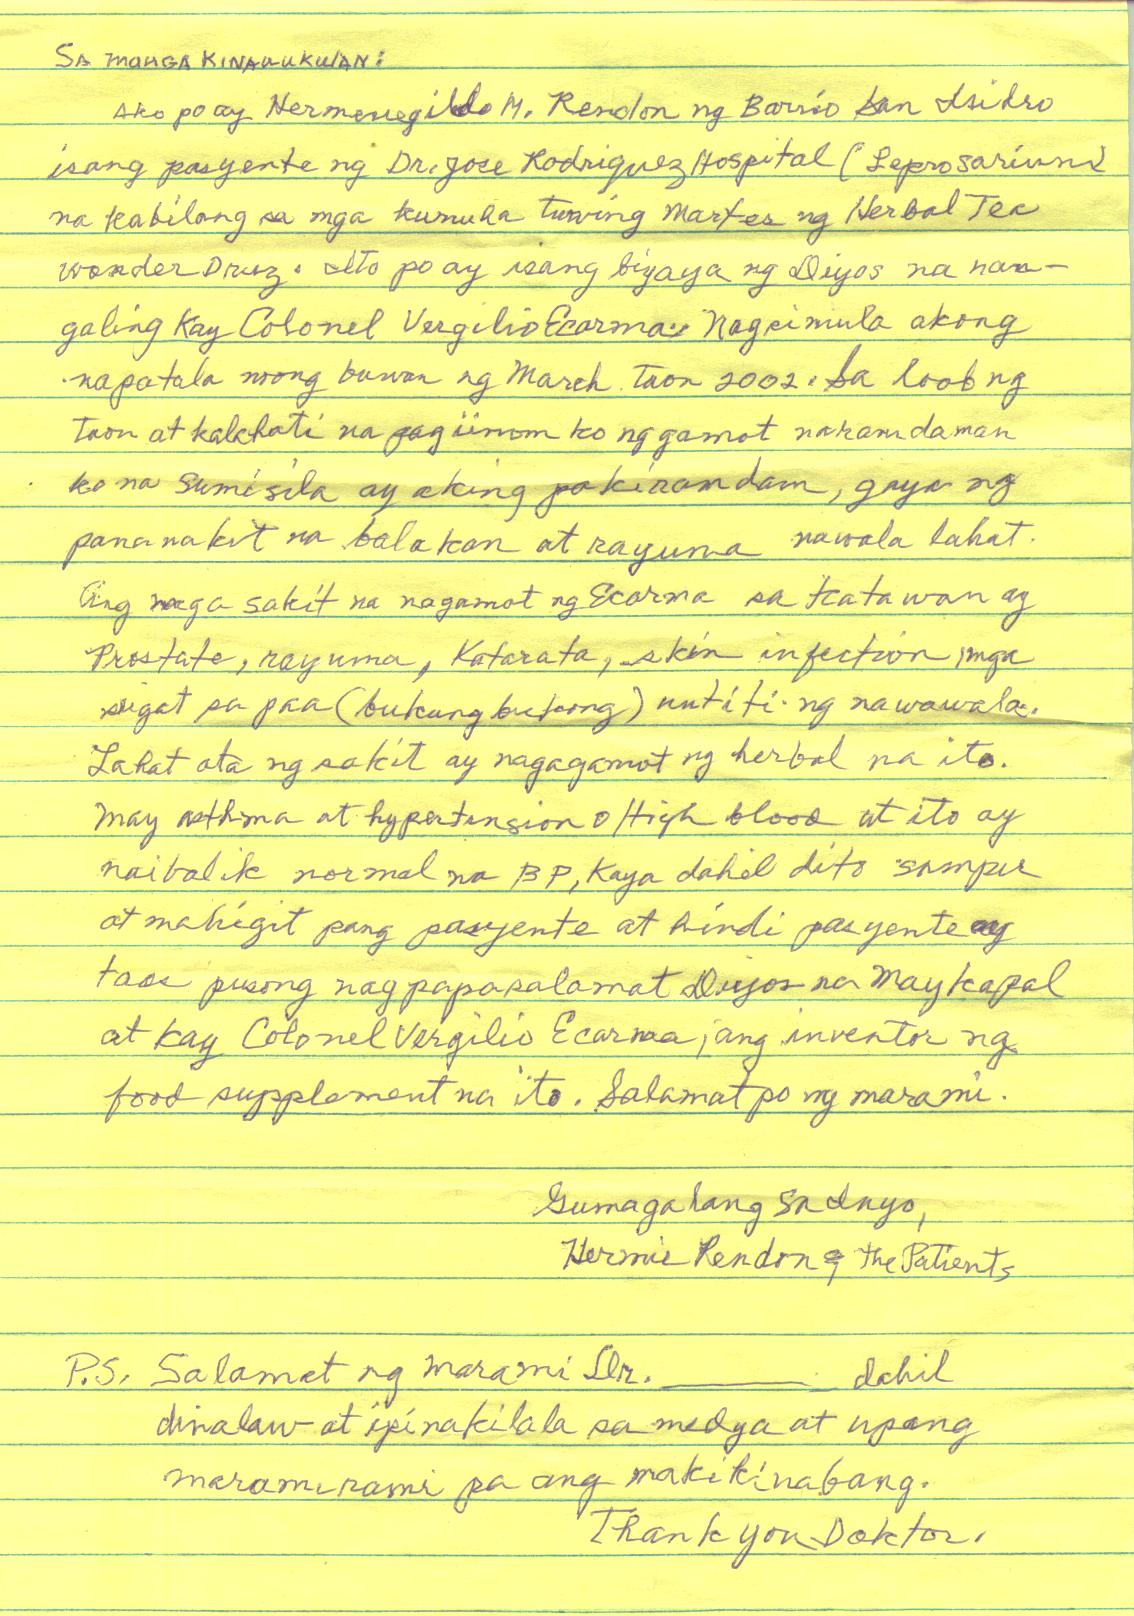 SA MAHGA KINAUUKULAN:
Ako po ay Hermenegildo M. Rendon ng Barrio San Isidro
isang pasyente ng Dr. Jose Rodriguez Hospital (Leprosarium)
na kabilang sa mga kumuha tuwing Martes ng Herbal Tea
wonder Drug. Ito po ay isang biyaya ng Diyos na nan-
galing Kay Colonel Vergilio Ecarma. Nagsimula akong
napatala noong buwan ng March Taon 2002. Sa loob ng
Taon at kalahati na pagiinom ko ng gamot naramdaman
ko na sumisila ay aking pakiramdam, gaya ng
pananakit na balakan at rayuma nawala lahat.
Ang mga sakit na nagamot ng Ecarma sa katawan ay
Prostate, rayuma, Katarata, skin infection, mga
sugat sa paa (bukung bukong) unti ti ng nawawala.
Lahat ata ng sakit ay nagagamot ng herbal na ito.
May asthma at hypertension o High blood at ito ay
naibalik normal na BP, Kaya dahil dito sampu
at mahigit pang pasyente at hindi pasyente ay
taos pusong nagpapasalamat Diyos na May kapal
at kay Colonel Vergilio Ecarma, ang inventor ng
food supplement na ito. Salamat po ng marami.
Gumagalang sa Inyo,
Hermie Rendon & The Patients
P.S. Salamat ng marami Dr. ________ dahil
dinalaw at ipinakilala sa medya at upang
maramirami pa ang makikinabang.
Thank you Doktor.